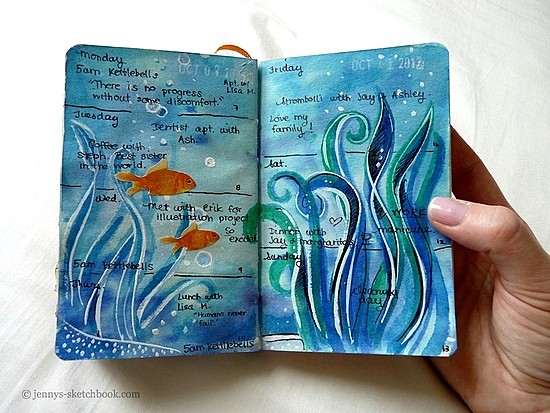 Monday
OCT 07 2012
5am Kettlebells
Apt. w/
Lisa M.
"There is no progress
without some discomfort."
7
Tuesday
Dentist apt. with
Ash.
Coffee with
Steph. Best sister
in the world.
8
Wed.
Met with Erik for
illustration project
So
excited!
5am Kettlebells
9
Thurs.
Lunch with
Lisa M.
"Humans never
fail."
5am Kettlebells
Friday
OCT 2012
Stromboli with Jay & Ashley
Love my
family!
Sat.
MORE
Dinner with
Jay & margaritas
manicure
12
Sunday
cleaning
day
13
© jennys-sketchbook.com